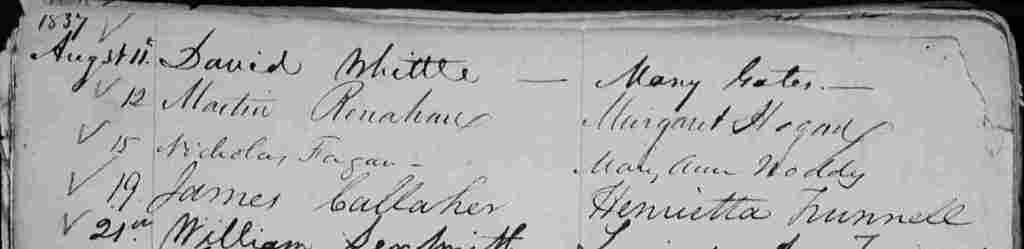 1837
Augst 11t David Whittle — Mary Gates. —
12 Martin Renahan Margaret Hogan
15 Nicholas Fagan - Mary Ann Noddy
19 James Callaher Henrietta Trunnell
21st William